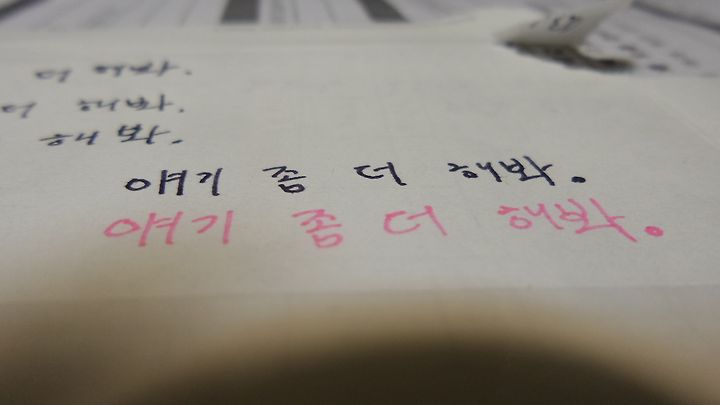 더 해봐.
더 해봐.
해 봐.
얘기 좀 더 해봐.
얘기 좀 더 해봐.